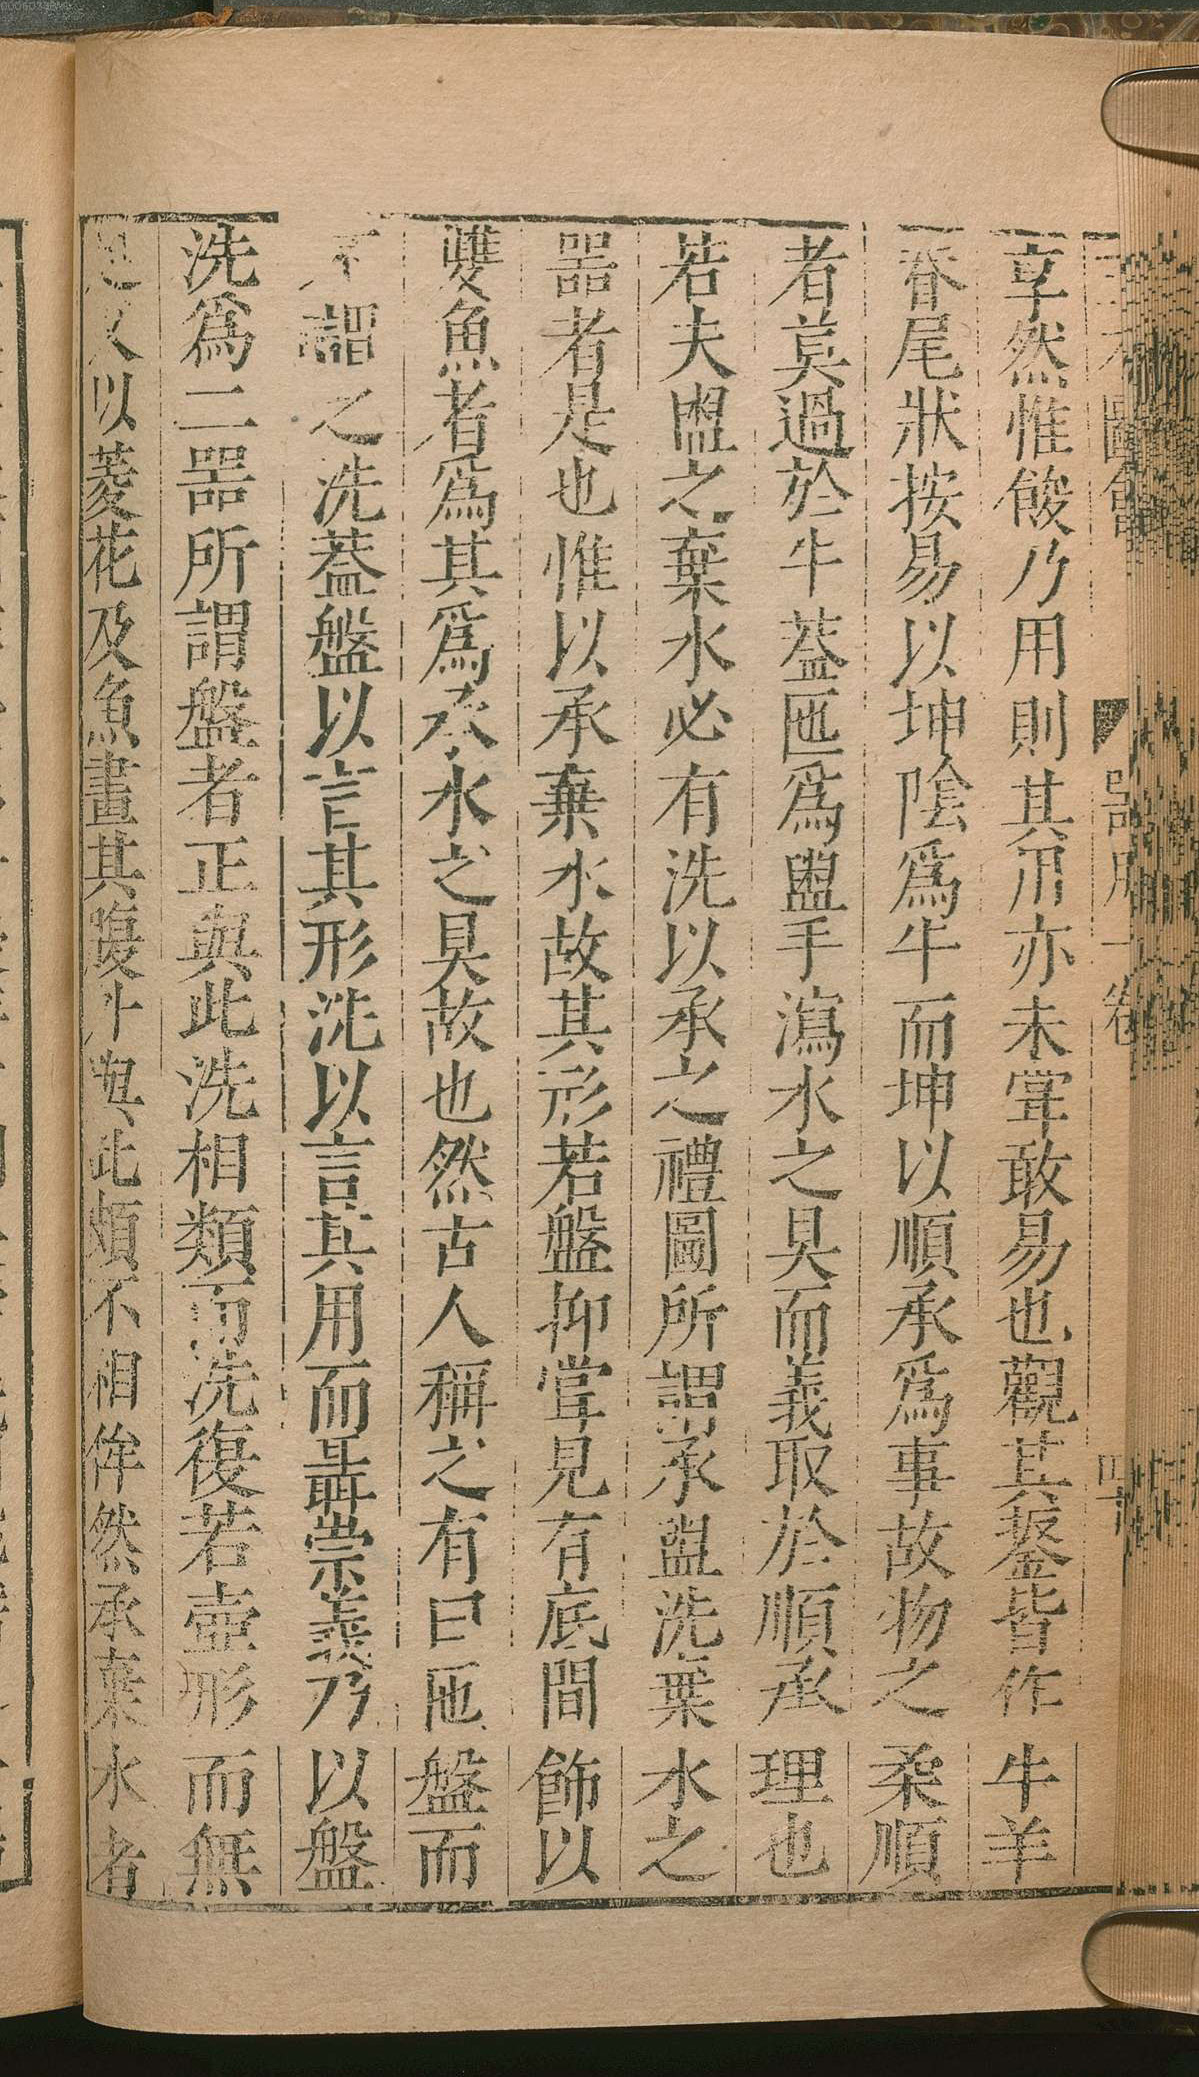 享然惟餕乃用則其用亦未嘗敢易也觀其鋬皆作牛羊
脊尾狀按易以坤陰爲牛而坤以順承爲事故物之柔順
者莫過於牛葢匜爲盥手瀉水之具而義取於順承理也
若夫盥之棄水必有洗以承之禮圖所謂承盥洗棄水之
噐者是也惟以承棄水故其形若盤抑嘗見有底間飾以
雙魚者爲其爲承水之具故也然古人稱之有曰匜盤而
不謂之洗蓋盤以言其形洗以言其用而聶崇義乃以盤
洗爲二噐所謂盤者正與此洗相類而洗復若壺形而無
足又以菱花及魚畫其腹外與此頗不相侔然承棄水者
圖會
噐用一卷